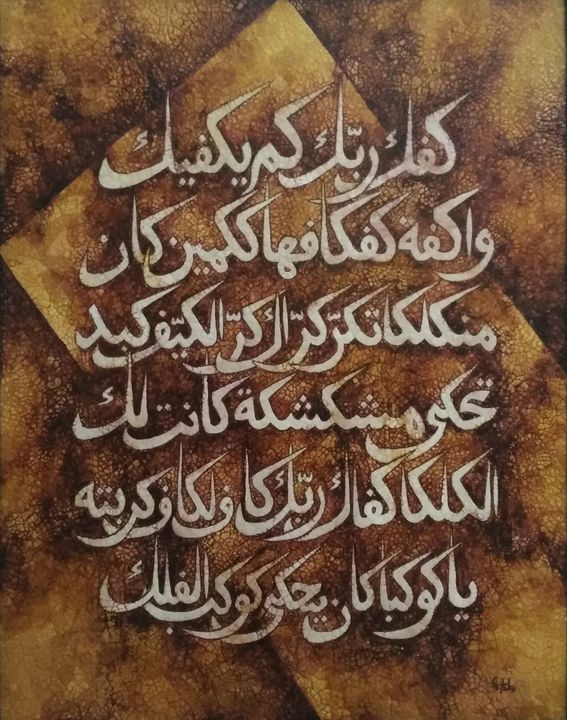 كفك ربّك كم يكفيك
واكفة كفكافها ككمين كان
منكلكا تكرّ كرّاك كرّ الكيّف كبد
تحكى مشكشكة كانت لك
الكلكا كفاك ربّك كاف لكاف كربته
يا كوكبا كان يحكى كوكب الفلك